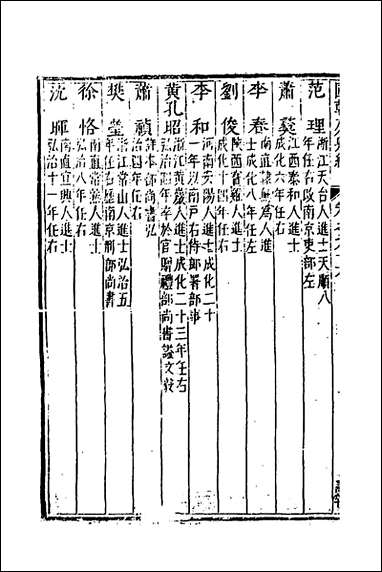 范理 浙江天台人進士天順八
年任右改南京吏部左
蕭 江西泰和人進士
成化六年任右
李春 南直隸 人進
士成化八年任左
劉俊 陝西寶雞人進士
成化十四年任右
李和 河南 陽人進士成化二十
一年以南戶右侍郎署部事
黄孔昭 浙江黄巖人進士成化二十三年任右
弘治四年卒於官贈禮部尚書謚文毅
蕭禎 本部尚書弘
治四年任右
樊瑩 浙江常山人進士弘治五
年任右 南京刑部尚書
徐恪 南直常熟人進士
弘治八年任右
沈暉 南直宜興人進士
弘治十一年任右